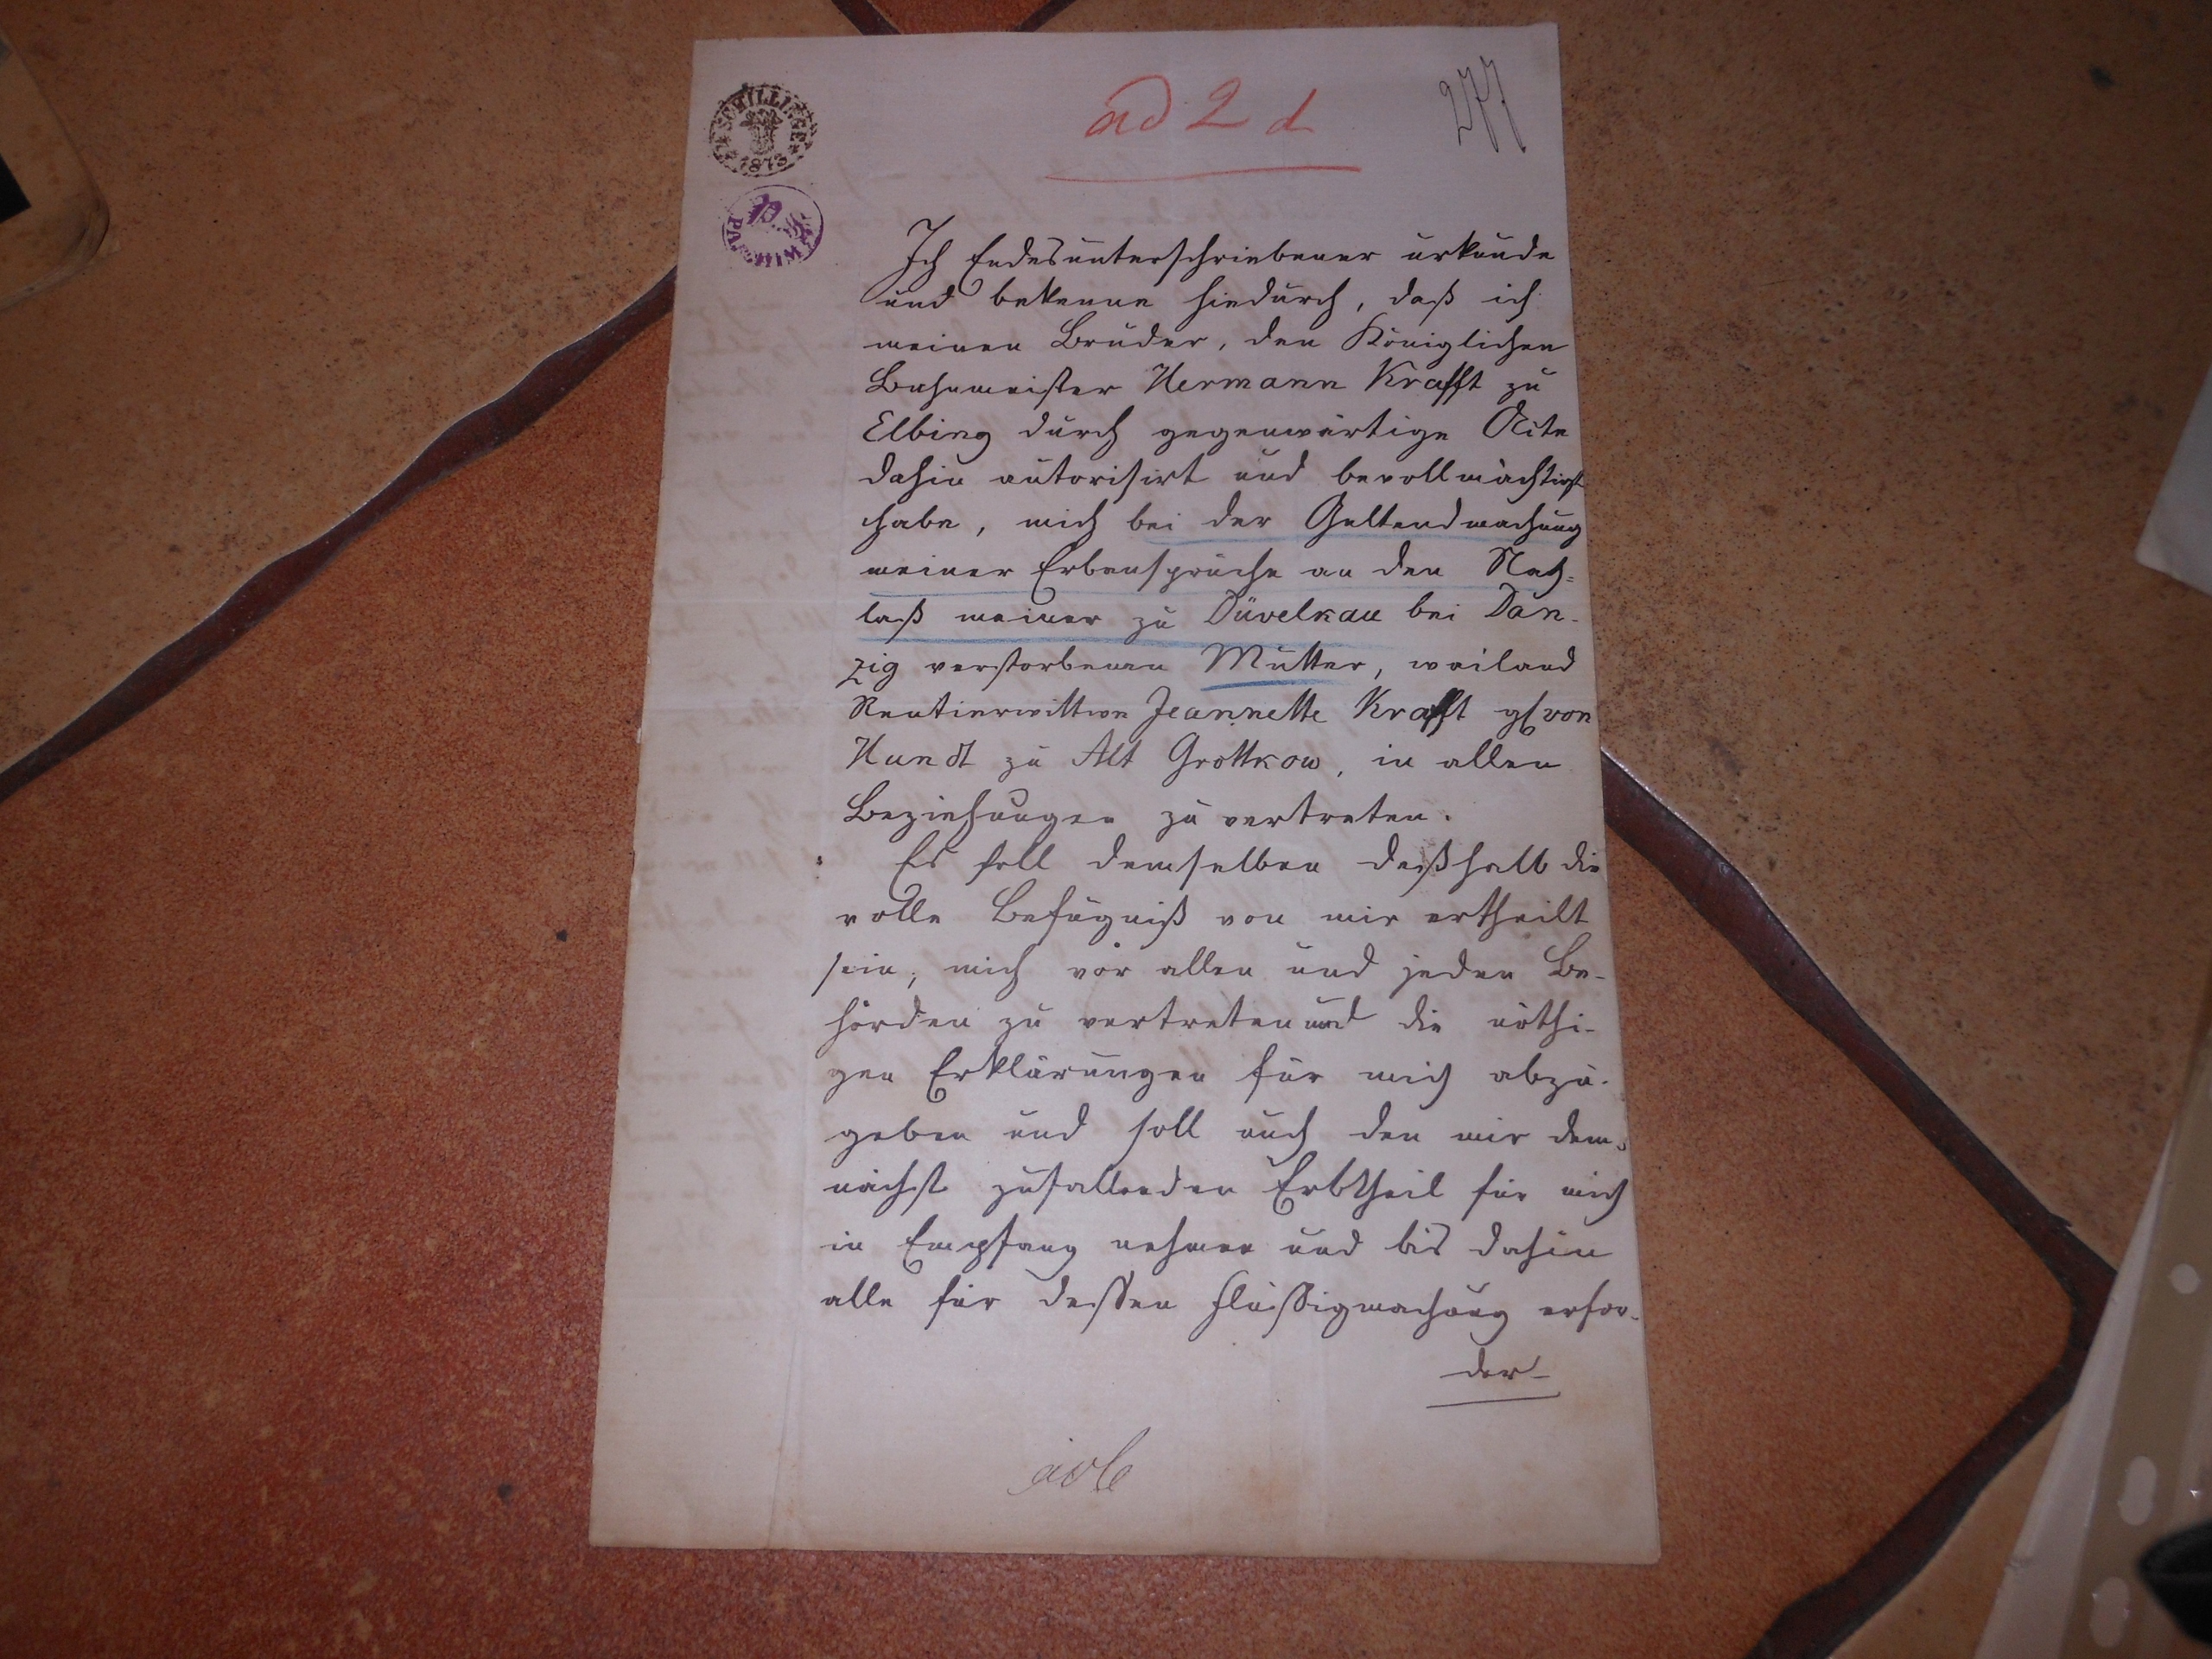 SCHILLINGE
1873
ad 2 d
277
Ich Endesunterschriebener urkunde
und bekenne hiedurch, daß ich
meinen Bruder, den Königlichen
Bahnmeister Hermann Krafft zu
Elbing durch gegenwärtige Acte
dahin autorisirt und bevollmächtigt
habe, mich bei der Geltendmachung
meiner Erbansprüche an den Nach-
laß meiner zu Düvelkau bei Dan-
zig verstorbenen Mutter, weiland
Rentierwittwe Jeannette Krafft geb von
Hundt zu Alt Grottkow, in allen
Beziehungen zu vertreten.
Es soll demselben deßhalb die
volle Befugniß von mir ertheilt
sein, mich vor allen und jeden Be-
hörden zu vertreten und die nöthi-
gen Erklärungen für mich abzu-
geben und soll auch den mir dem-
nächst zufallenden Erbtheil für mich
in Empfang nehmen und bis dahin
alle für dessen Flüssigmachung erfor-
der-